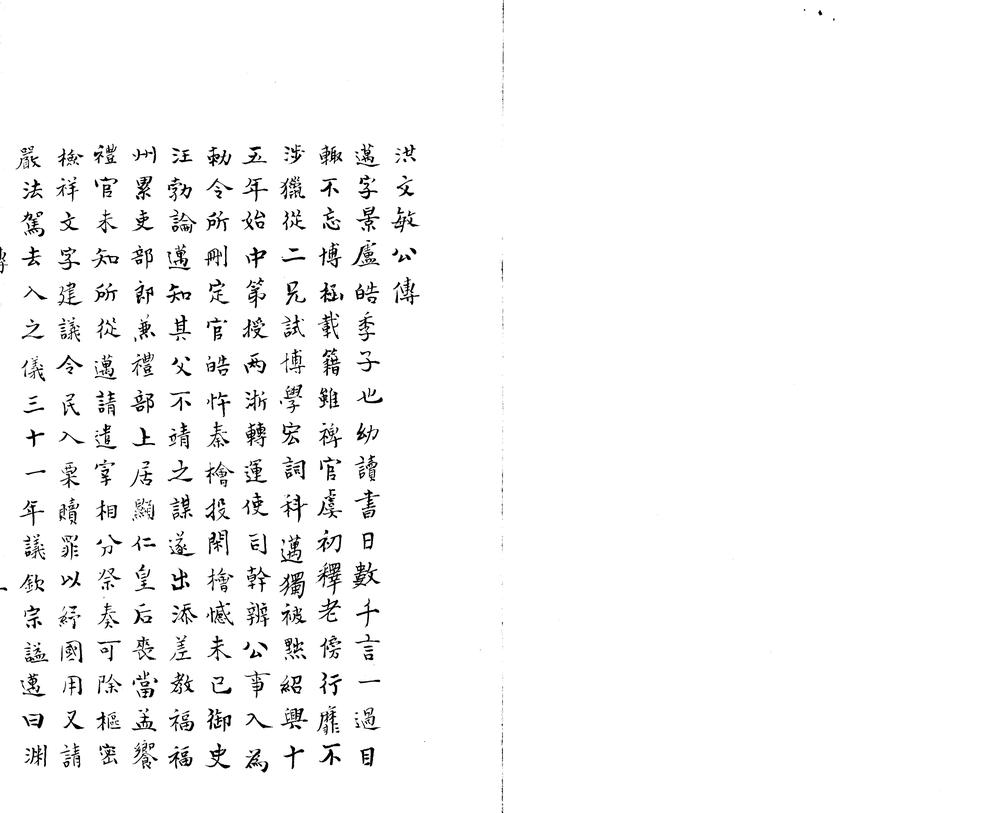 洪文敏公傳
邁字景盧皓季子也幼讀書日數千言一過目
輒不忘博極載籍雖稗官虞初釋老傍行靡不
涉獵從二兄試博學宏詞科邁獨被黜紹興十
五年始中第授兩浙轉運使司幹辦公事入為
勑令所刪定官皓忤秦檜投閑檜憾未已御史
汪勃論邁知其父不靖之謀遂出添差教福福
州累吏部郎兼禮部上居顯仁皇后喪當孟饗
禮官未知所從邁請遣宰相分祭奏可除樞密
檢祥文字建議令民入粟贖罪以紓國用又請
嚴法駕去入之儀三十一年議欽宗謚邁曰淵
傳
一